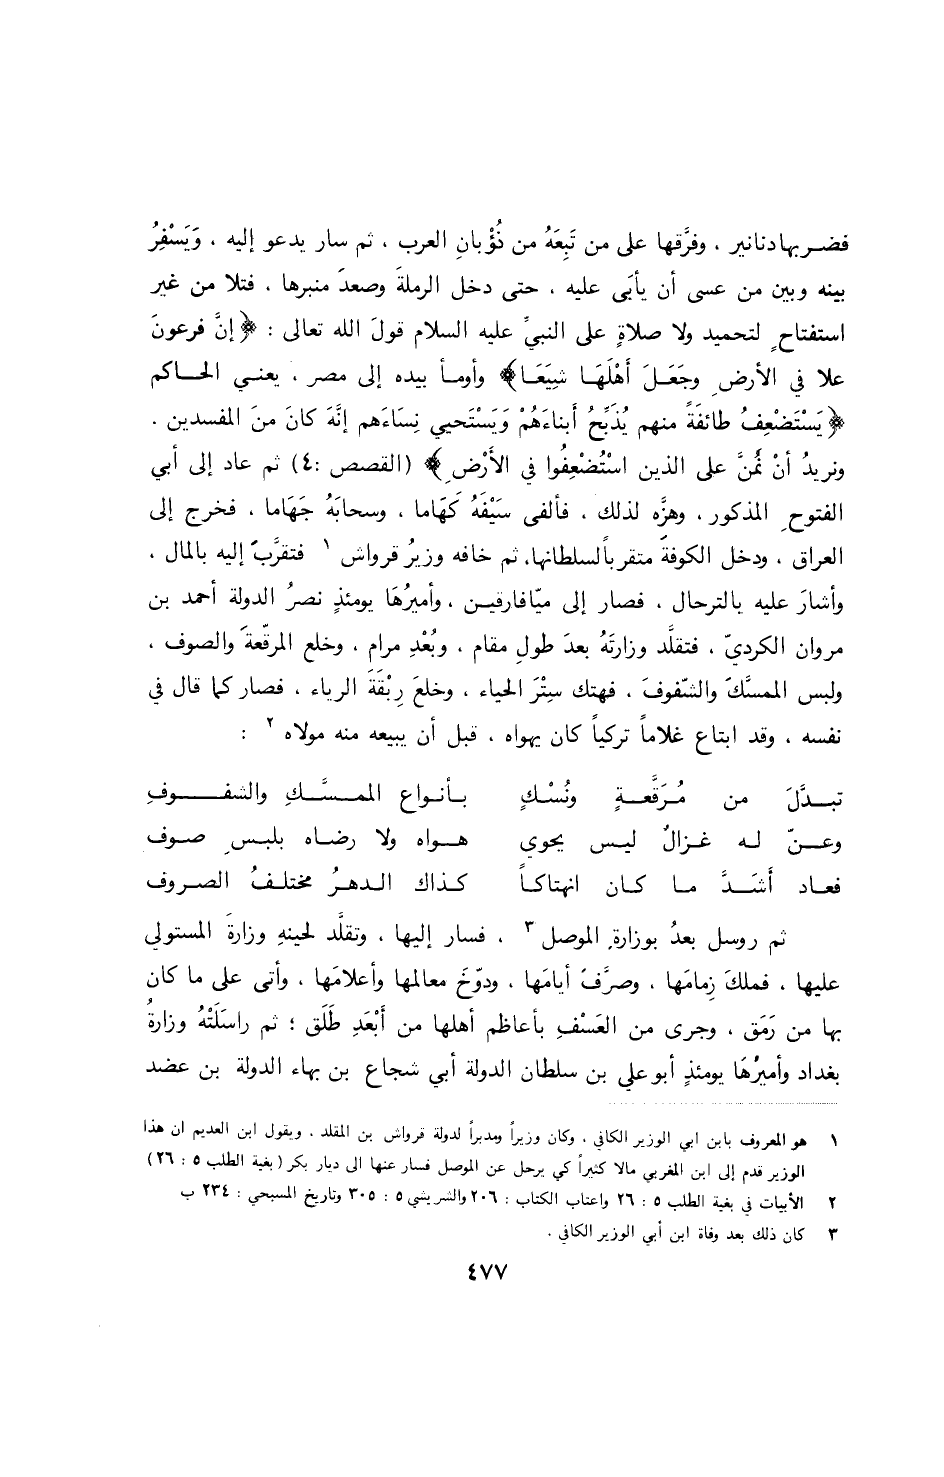 فضربها دنانير ، وفرَّقها على من تَبِعَهُ من ذُؤْبانِ العرب ، ثم سار يدعو إليه ، وَيَسْفِرُ
بينه وبين من عسى أن يأبَى عليه ، حتى دخل الرملةَ وصعدَ منبرها ، فتلا من غير
استفتاحٍ لتحميد ولا صلاةٍ على النبيِّ عليه السلام قولَ الله تعالى : ﴿ إنَّ فرعونَ
علا في الأرضِ وجَعَلَ أَهْلَهَا شِيَعَا﴾ وأومأ بيده إلى مصر ، يعني الحاكم
﴿ يَسْتَضْعِفُ طائفَةً منهم يُذَبِّحُ أبناءَهُمْ وَيَسْتَحيي نِسَاءَهم إنَّهَ كانَ منَ المفسدين .
ونريدُ أنْ نَمُنَّ على الذين اسْتُضْعِفُوا في الأَرْضِ ﴾ (القصص :٤) ثم عاد إلى أبي
الفتوحِ المذكور ، وهزَّه لذلك ، فألفى سَيْفَهُ كَهَاما ، وسحابَهُ جَهَاما ، فخرج إلى
العراق ، ودخل الكوفةَ متقرباً لسلطانها، ثم خافه وزيرُ قرواش ١ فتقرَّبَ إليه بالمال ،
وأشارَ عليه بالترحال ، فصار إلى ميّافارقين ، وأميرُهَا يومئذٍ نصرُ الدولة أحمد بن
مروان الكرديّ ، فتقلَّد وزارتَهُ بعدَ طولِ مقام ، وبُعْدِ مرام ، وخلع المرقّعةَ والصوف ،
ولبس الممسَّكَ والشّفوفَ ، فهتك سِتْرَ الحياء ، وخلعَ رِبْقَةَ الرياء ، فصار كما قال في
نفسه ، وقد ابتاع غلاماً تركياً كان يهواه ، قبل أن يبيعه منه مولاه ٢ :
تبدَّلَ من مُرَقَّعةٍ ونُسْكٍ بأنواع الممسَّكِ والشفوفِ
وعنّ له غزالٌ ليس يحوي هواه ولا رضاه بلبسِ صوف
فعاد أشَدَّ ما كان انهتاكاً كذاك الدهرُ مختلفُ الصروف
ثم روسل بعدُ بوزارةِ الموصل ٣ ، فسار إليها ، وتقلَّد لحينهِ وزارةَ المستولي
عليها ، فملكَ زِمامَها ، وصرَّفَ أيامَها ، ودوّخَ معالمها وأعلامَها ، وأتى على ما كان
بها من رَمَقٍ ، وجرى من العَسْفِ بأعاظم أهلها من أبْعَدِ طَلَق ؛ ثم راسَلَتْهُ وزارةُ
بغداد وأميرُهَا يومئذٍ أبو علي بن سلطان الدولة أبي شجاع بن بهاء الدولة بن عضد
١ هو المعروف بابن ابي الوزير الكافي ، وكان وزيراً ومدبراً لدولة قرواش بن المقلد ، ويقول ابن العديم ان هذا
الوزير قدم إلى ابن المغربي مالا كثيراً كي يرحل عن الموصل فسار عنها الى ديار بكر ( بغية الطلب ٥ : ٢٦)
٢ الأبيات في بغية الطلب ٥ : ٢٦ واعتاب الكتاب : ٢٠٦ والشريشي ٥ : ٣٠٥ وتاريخ المسبحي : ٢٣٤ ب
٣ كان ذلك بعد وفاة ابن أبي الوزير الكافي .
٤٧٧